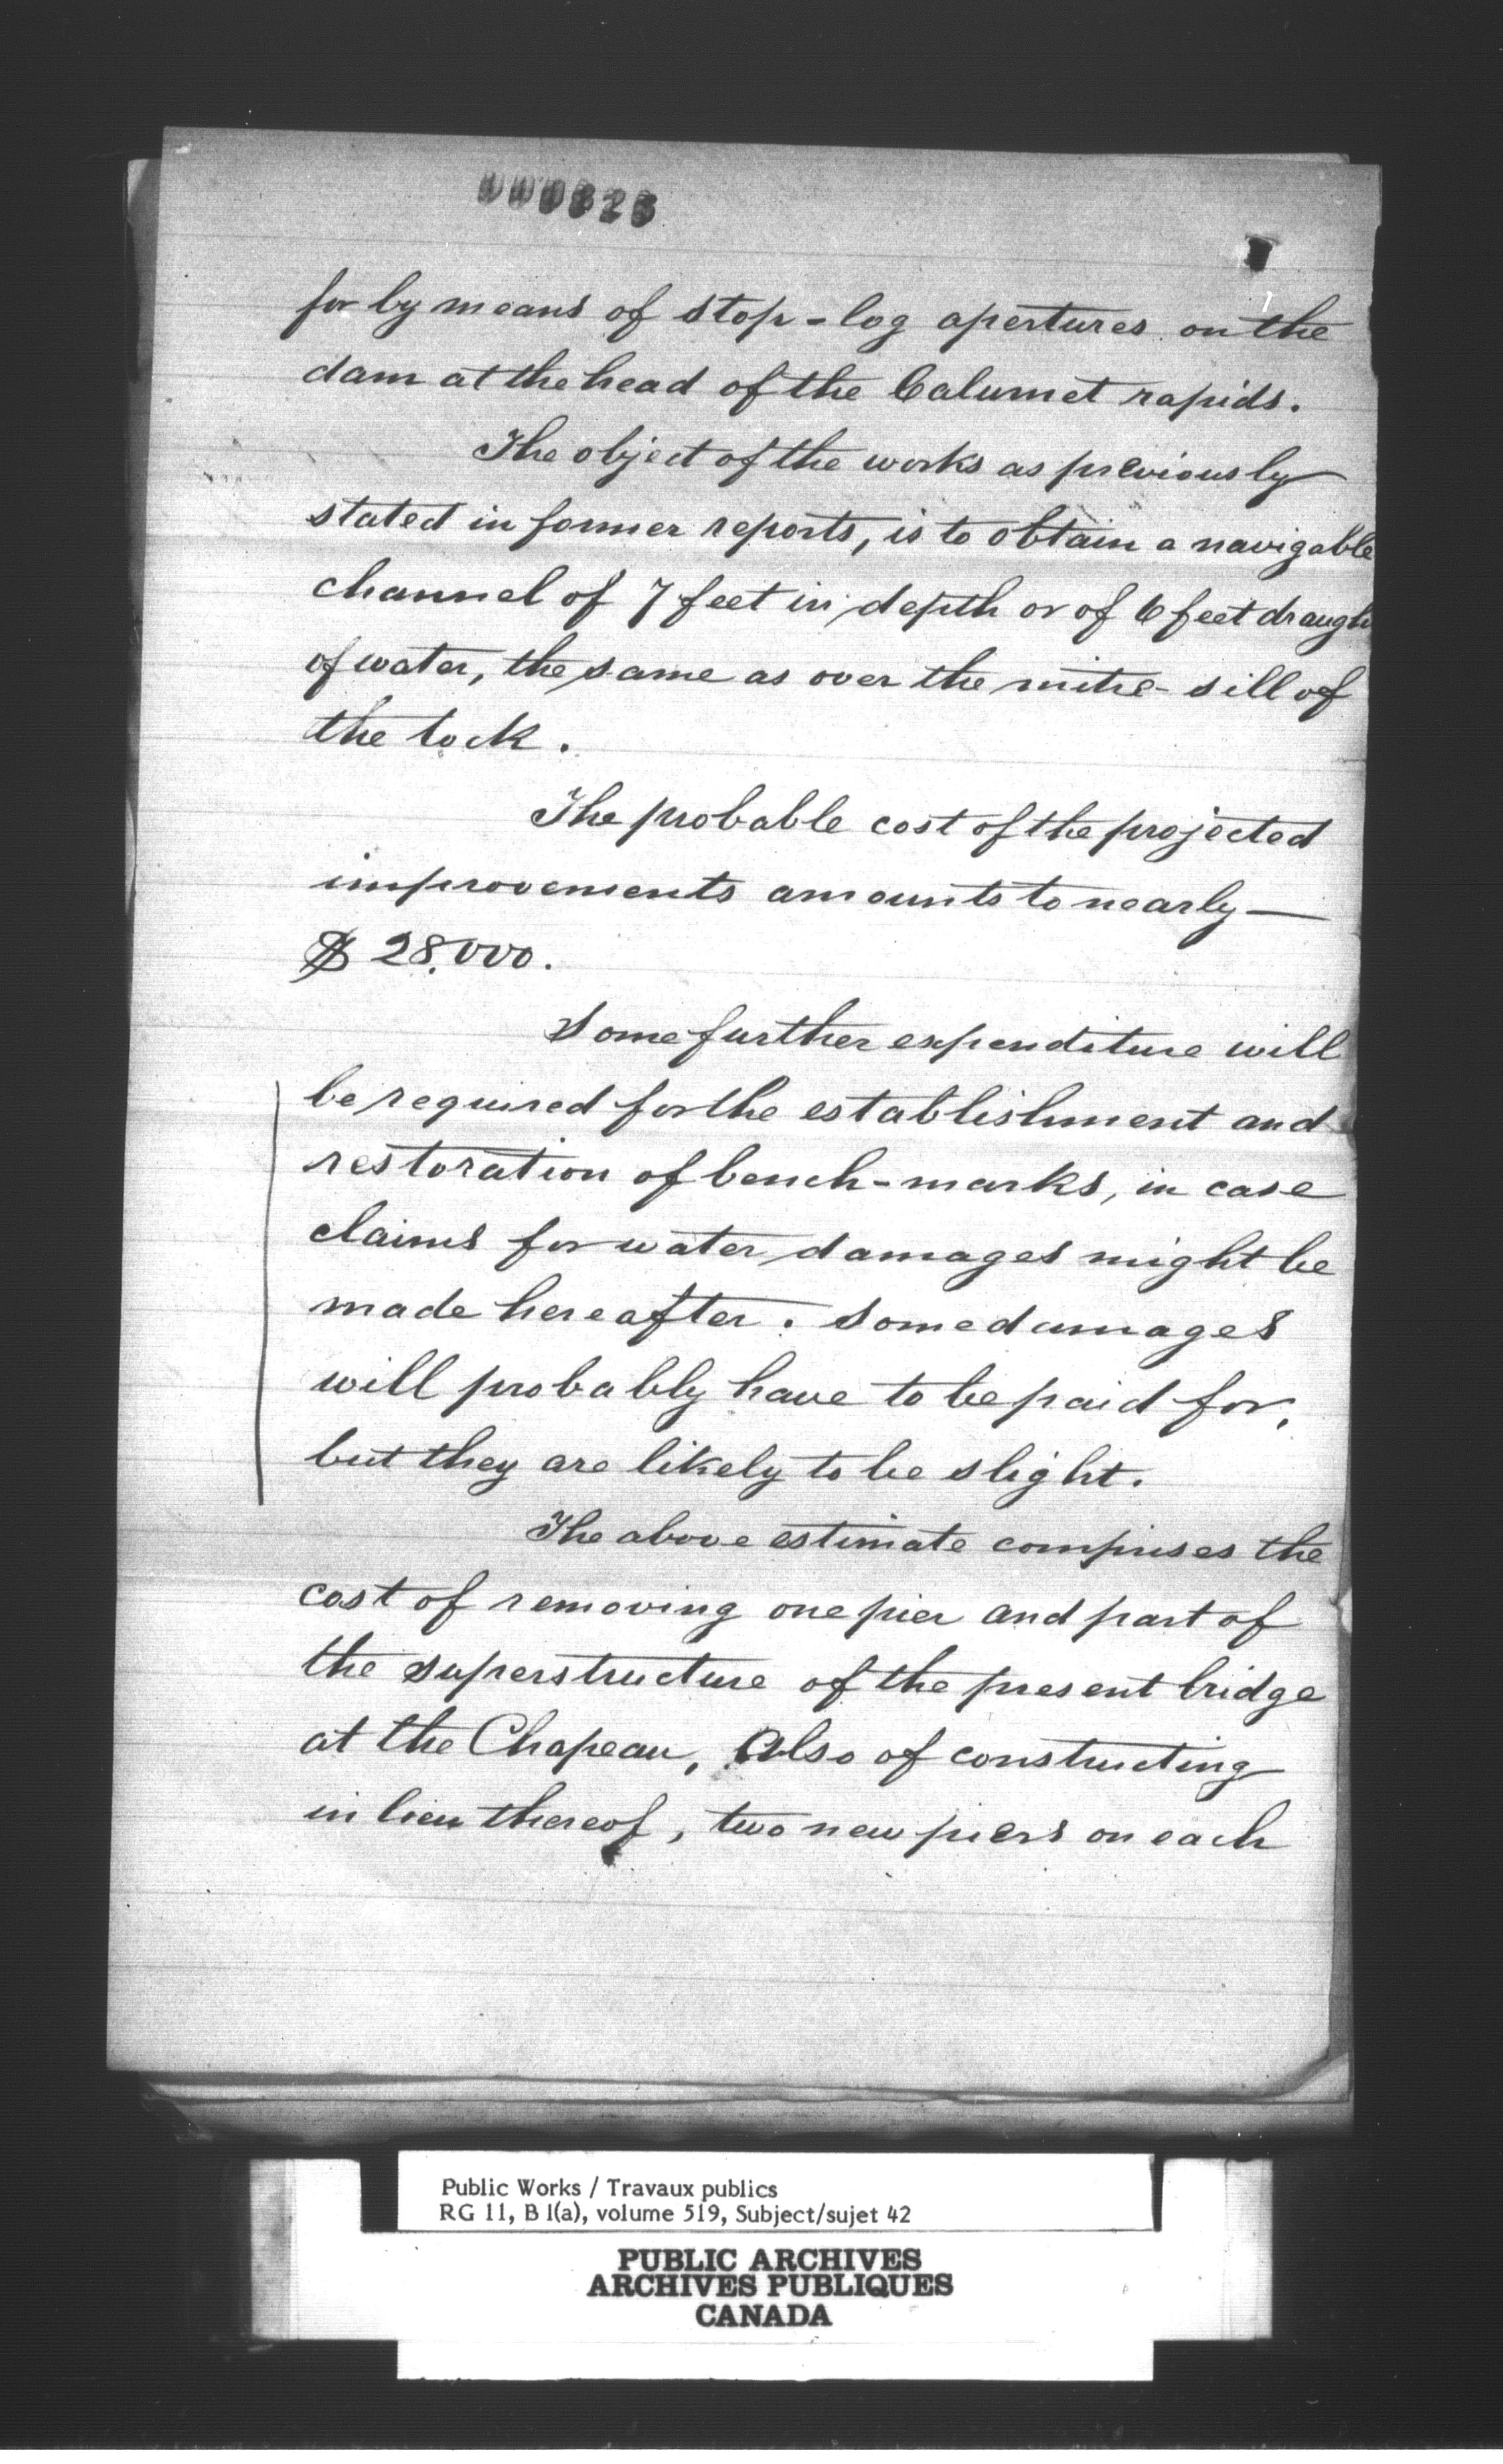 for by means of stop-log apertures on the
dam at the head of the Calumet rapids.
The object of the works as previously
stated in former reports, is to obtain a navigable
channel of 7 feet in depth or of 6 feet draught
of water, the same as over the mitre-sill of
the lock.
The probable cost of the projected
improvements amounts to nearly—
$ 28,000.
Some further expenditure will
be required for the establishment and
restoration of bench-marks, in case
claims for water damages might be
made hereafter. Some damages
will probably have to be paid for,
but they are likely to be slight.
The above estimate comprises the
cost of removing one pier and part of
the superstructure of the present bridge
at the Chapeau, Also of constructing
in lieu thereof, two new piers on each
Public Works / Travaux publics
RG 11, B 1(a), volume 519, Subject/sujet 42
PUBLIC ARCHIVES
ARCHIVES PUBLIQUES
CANADA